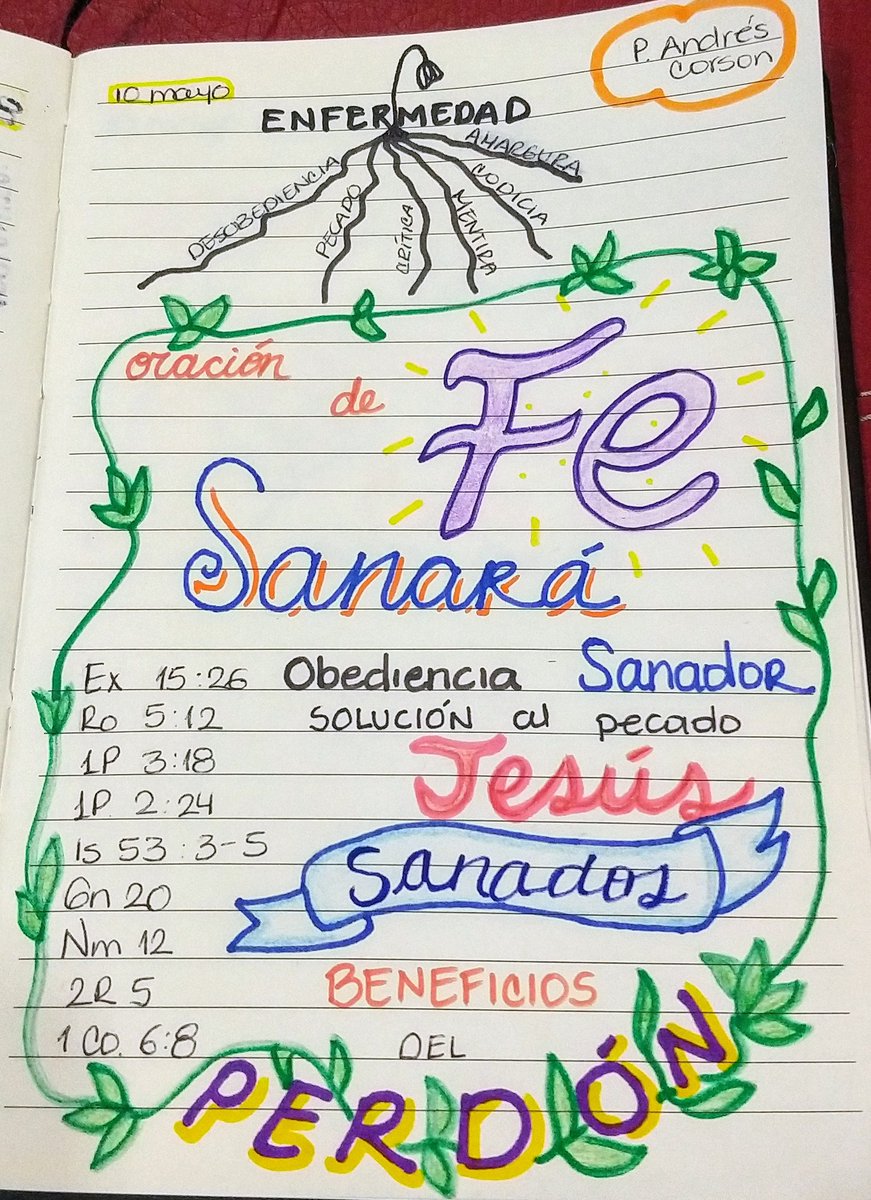 10 mayo
P. Andrés
Corson
ENFERMEDAD
DESOBEDIENCIA
PECADO
CRÍTICA
MENTIRA
CODICIA
AMARGURA
oración
de Fe
Sanará
Ex 15:26 Obediencia Sanador
Ro 5:12 SOLUCIÓN al pecado
1P 3:18
Jesús
1P. 2:24
Is 53:3-5
Sanados
Gn 20
Nm 12
2R 5 BENEFICIOS
1 Co. 6:8 DEL
PERDÓN